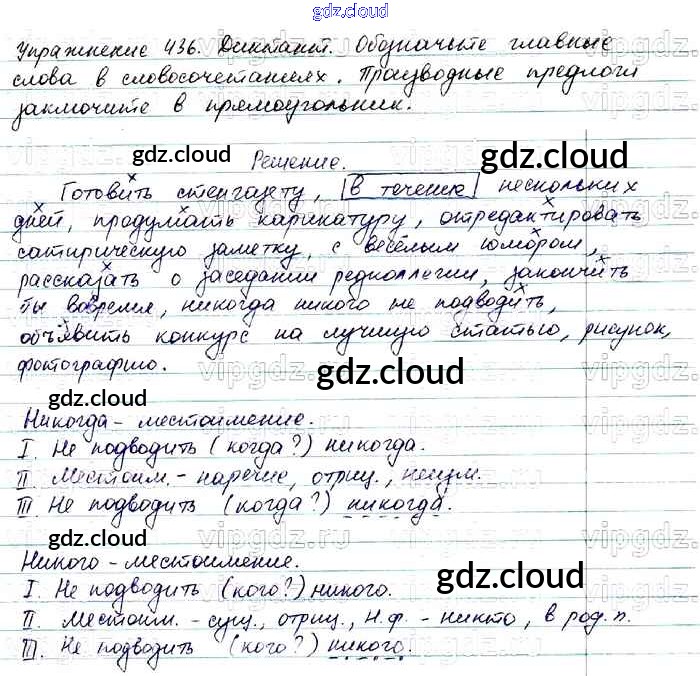 gdz.cloud
Упражнение 436. Диктант. Обозначьте главные
слова в словосочетаниях. Производные предлоги
заключите в прямоугольник.
gdz.cloud
Решение.
gdz.cloud
Готовить стенгазету, в течение нескольких
дней, продумать карикатуру, отредактировать
сатирическую заметку, с весёлым юмором,
рассказать о заседании редколлегии, закончить
ты вовремя, никогда никого не подводить,
объявить конкурс на лучшую статью, рисунок,
фотографию.
gdz.cloud
gdz.cloud
Никогда - местоимение.
I. Не подводить (когда?) никогда.
II. Местоим. - наречие, отриц., неизм.
III. Не подводить (когда?) никогда.
gdz.cloud
gdz.cloud
Никого - местоимение.
gdz.cloud
I. Не подводить (кого?) никого.
II. Местоим. - сущ., отриц., н.ф. - никто, в род. п.
III. Не подводить (кого?) никого.
gdz.cloud
vipgdz.ru